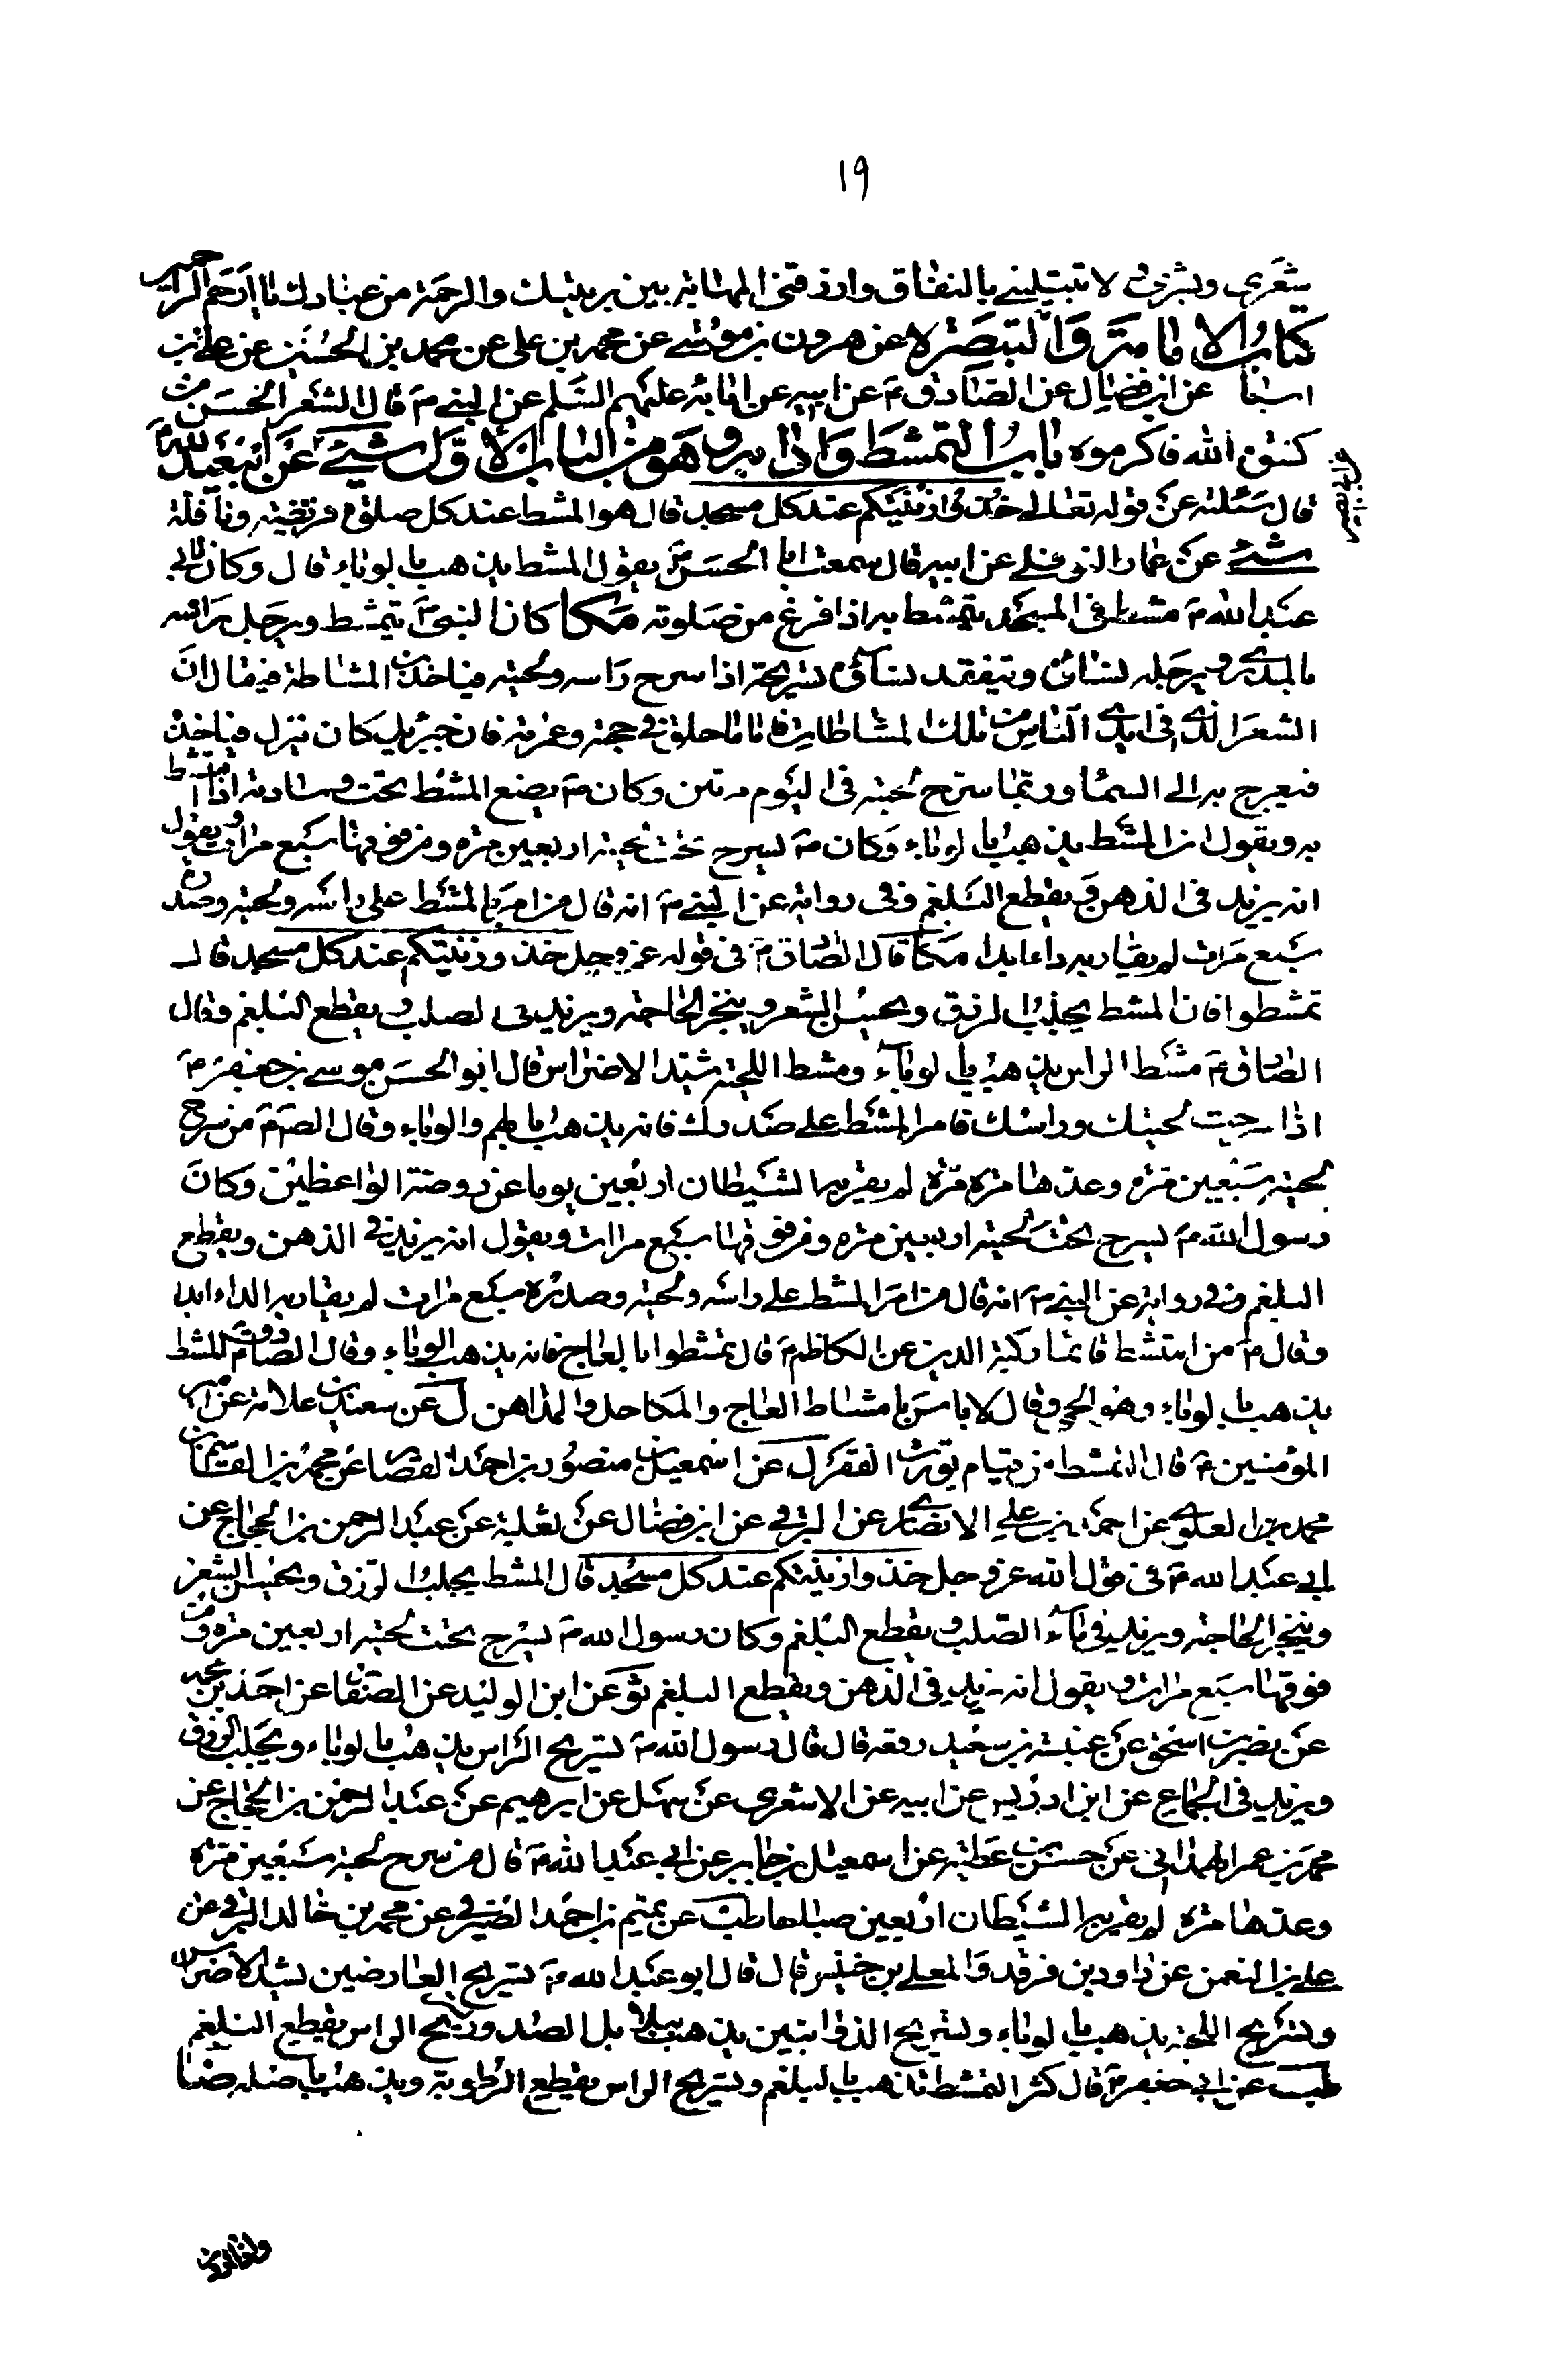 ١٩
شعري وبشري لا تبتليني بالنفاق وارزقني المهابة بين بريتك والرحمة من عبادك يا ارحم الراحمين
كتاب الامامة والتبصرة عن هرون بن موسى عن محمد بن علي عن محمد بن الحسين عن علي بن
اسباط عن ابن فضال عن الصادق ع عن ابيه عن ابائه عليهم السلم عن النبي ص قال الشعر الحسن من
كسوة الله فاكرموه باب التمشط وادابه وهو من الباب الاول شي عن ابي بصير عن ابي عبد الله ع
قال سئلته عن قوله تعالى خذوا زينتكم عند كل مسجد قال هو المشط عند كل صلوة فريضة ونافلة
شي عن عمار النوفلي عن ابيه قال سمعت ابا الحسن ع يقول المشط يذهب بالوباء قال وكان لابي
عبد الله ع مشط في المسجد يتمشط به اذا فرغ من صلوته مكا كان النبي ص يتمشط ويرجل راسه
بالمدرى ويرجله نساؤه وتتفقد نساؤه تسريحه اذا سرح راسه ولحيته فياخذن المشاطة فيقال ان
الشعر الذي في ايدي الناس من تلك المشاطات فاما ما حلق في حجته وعمرته فان جبرئيل كان ينزل فياخذه
فيعرج به الى السماء وربما سرح لحيته في اليوم مرتين وكان ص يضع المشط تحت وسادته اذا امتشط
به ويقول ان المشط يذهب بالوباء وكان ص يسرح تحت لحيته اربعين مرة ومن فوقها سبع مرات ويقول
انه يزيد في الذهن ويقطع البلغم وفي رواية عن النبي ص انه قال من امر بالمشط على راسه ولحيته وصدره
سبع مرات لم يقاربه داء ابدا مكا قال الصادق ع في قوله عز وجل خذوا زينتكم عند كل مسجد قال
تمشطوا فان المشط يجلب الرزق ويحسن الشعر وينجز الحاجة ويزيد في الصلب ويقطع البلغم وقال
الصادق ع مشط الراس يذهب بالوباء ومشط اللحية يشد الاضراس قال ابو الحسن موسى بن جعفر ع
اذا سرحت لحيتك وراسك فامر المشط على صدرك فانه يذهب بالهم والوباء وقال الص ع من سرح
لحيته سبعين مرة وعدها مرة مرة لم يقربه الشيطان اربعين يوما عن روضة الواعظين وكان
رسول الله ص يسرح تحت لحيته اربعين مرة وفرق فوقها سبع مرات ويقول انه يزيد في الذهن ويقطع
البلغم وفي رواية عن النبي ص انه قال من امر المشط على راسه ولحيته وصدره سبع مرات لم يقاربه الداء ابدا
وقال ص من امتشط قائما ركبه الدين عن الكاظم ع قال تمشطوا بالعاج فانه يذهب بالوباء وقال الصادق ع المشط
يذهب بالوباء وهو الحمى وقال لا باس بامشاط العاج والمكاحل والمداهن ل عن سعيد بن علاقة عن امير
المؤمنين ع قال التمشط من قيام يورث الفقر ل عن اسمعيل بن منصور بن احمد القصار عن محمد بن القسم بن
محمد بن العلوي عن احمد بن علي الانصاري عن البرقي عن ابن فضال عن ثعلبة عن عبد الرحمن بن الحجاج عن
ابي عبد الله ع في قول الله عز وجل خذوا زينتكم عند كل مسجد قال المشط يجلب الرزق ويحسن الشعر
وينجز الحاجة ويزيد في ماء الصلب ويقطع البلغم وكان رسول الله ص يسرح تحت لحيته اربعين مرة ومن
فوقها سبع مرات ويقول انه يزيد في الذهن ويقطع البلغم ثو عن ابن الوليد عن الصفار عن احمد بن محمد
عن نضر بن اسحق عن عنبسة بن سعيد رفعه قال قال رسول الله ص تسريح الراس يذهب بالوباء ويجلب الرزق
ويزيد في الجماع عن ابن ادريس عن ابيه عن الاشعري عن سهل عن ابرهيم عن عبد الرحمن بن الحجاج عن
محمد بن عمر الهمداني عن حسن بن عطية عن اسمعيل بن جابر عن ابي عبد الله ع قال من سرح لحيته سبعين مرة
وعدها مرة لم يقربه الشيطان اربعين صباحا طب عن تميم بن احمد الصيرفي عن محمد بن خالد البرقي عن
علي بن النعمن عن داود بن فرقد والمعلى بن خنيس قال قال ابو عبد الله ع تسريح العارضين يشد الاضراس
وتسريح اللحية يذهب بالوباء وتسريح الذؤابتين يذهب ببلابل الصدر وتسريح الراس يقطع البلغم
طب عن ابي جعفر ع قال كثرة التمشط تذهب بالبلغم وتسريح الراس يقطع الرطوبة ويذهب باصله ضا